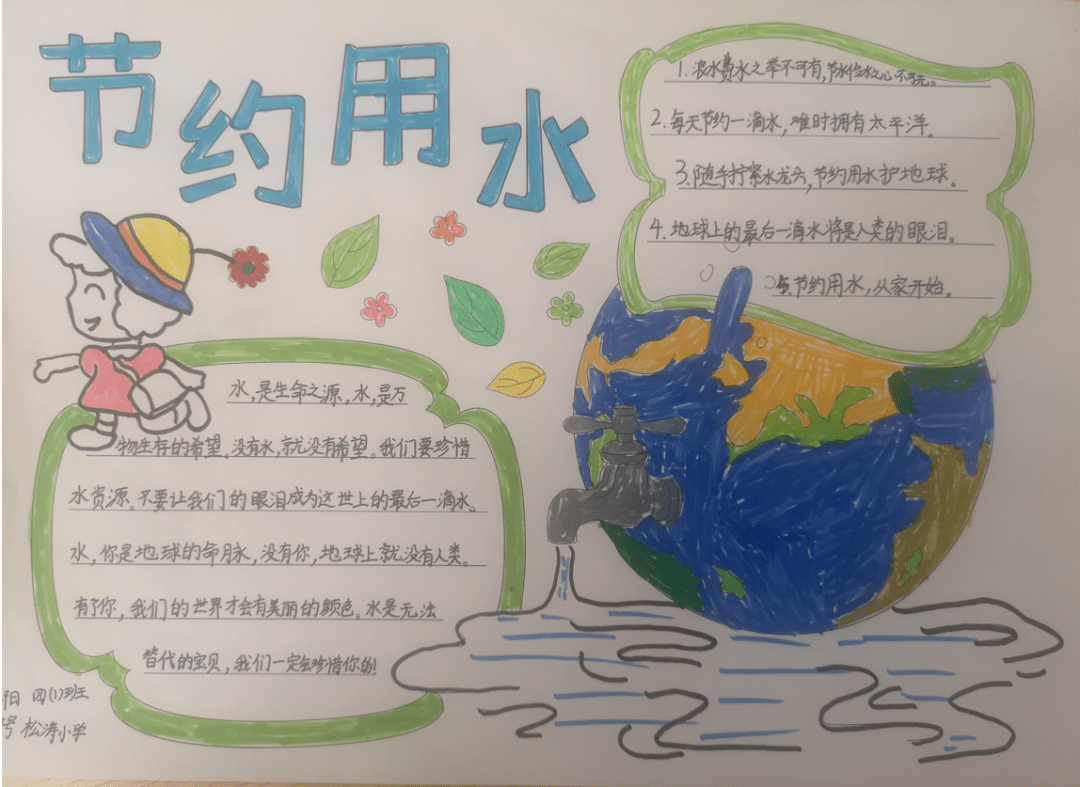 节约用水
1. 浪费水之举不可有，节水惜水之心不可无。
2. 每天节约一滴水，难时拥有太平洋。
3. 随手拧紧水龙头，节约用水护地球。
4. 地球上的最后一滴水将是人类的眼泪。
5. 节约用水，从家开始。
水，是生命之源。水，是万
物生存的希望。没有水，就没有希望。我们要珍惜
水资源。不要让我们的眼泪成为这世上的最后一滴水。
水，你是地球的命脉，没有你，地球上就没有人类。
有了你，我们的世界才会有美丽的颜色。水是无法
替代的宝贝，我们一定会珍惜你的!
阳 四(1)班
号 松涛小学